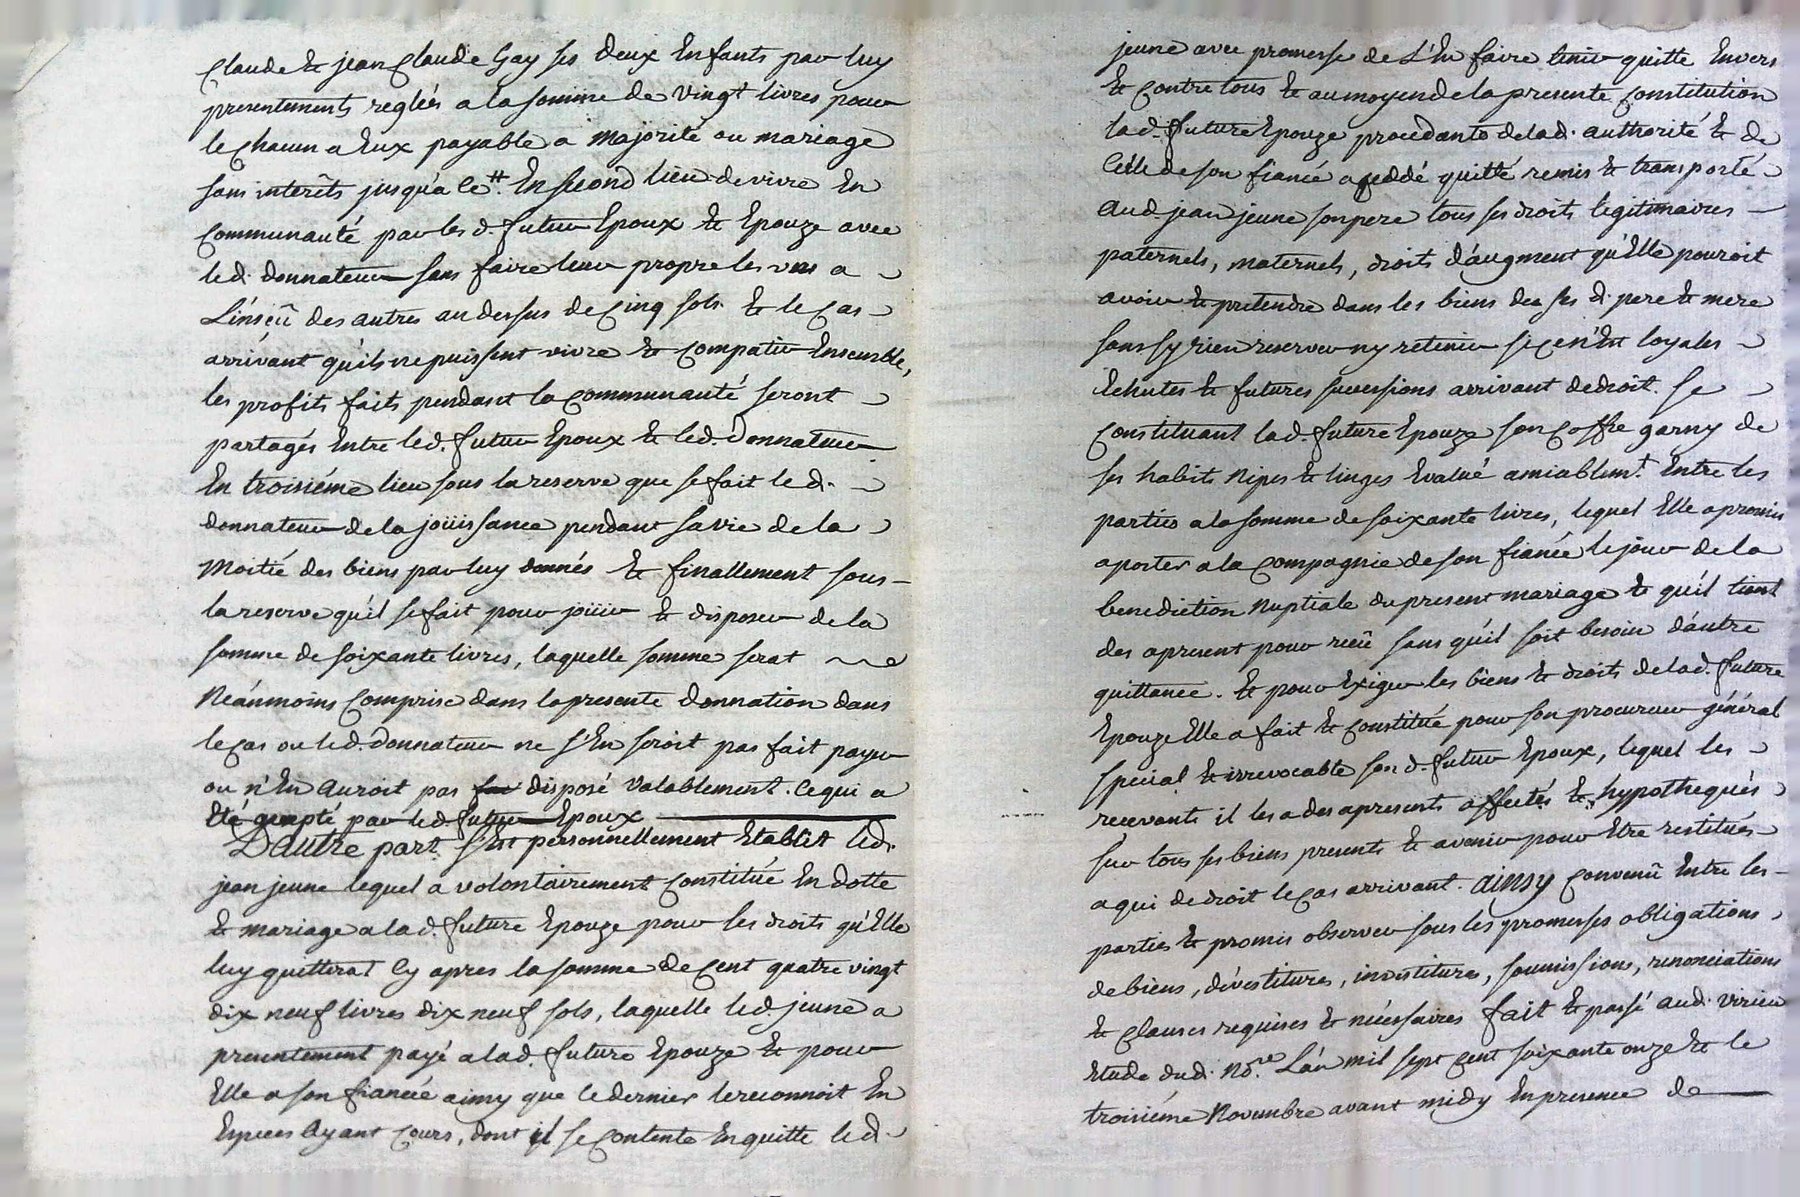 Claude et jean Claude Gay ses deux Enfants par luy
presentements reglés a la somme de vingt livres pour
le chacun a Eux payable a majorité ou mariage
sans interêts jusqu'a ce.tt En second lieu de vivre En
Communauté par les d. futur Epoux et Epouze avec
led. donnateur sans faire leur propre les uns a
L'insçû des autres au dessus de Cinq sols. et le cas
arrivant qu'ils ne puissent vivre et compatir Ensemble,
les profits faits pendant la Communauté seront
partagés Entre led. futur Epoux et led. donnateur
En troisiéme lieu sous la reserve que se fait led.
donnateur de la joüissance pendant sa vie de la
Moitié des biens par luy donnés et finallement sous
la reserve qu'il se fait pour joüir et disposer de la
somme de soixante livres, laquelle somme serat
Neánmoins Comprise dans la presente donnation dans
le cas ou led. donnateur ne s'En seroit pas fait payer
ou n'En auroit pas disposé valablement. Ce qui a
Eté accepté par led. futur Epoux
D'autre part. s'Est personnellement Etablit led.
jean jeune lequel a volontairement Constitué En dotte
et mariage a lad. future Epouze pour les droits qu'Elle
luy quitterat Cy apres la somme de Cent quatre vingt
dix neuf livres dix neuf sols, laquelle led jeune a
presentement payé a lad. future Epouze et pour
Elle a son fiancée ainsy que ce dernier le reconnoit En
Especes ayant Cours, dont il se Contente En quitte led
jeune avec promesse de L'En faire tenir quitte Envers
et Contre tous et au moyen de la presente Constitution
lad. future Epouze procedants de lad. authorité et de
Celle de son fiancé a ceddé quitté remis et transporté
aud. jean jeune son pere tous ses droits legitimaires
paternels, maternels, droits d'augment qu'Elle pouroit
avoir et pretendre dans les biens des ses d. pere et mere
sans sy rien reserver ny retenir si ce n'Est loyales
Echutes et futures successions arrivant de droit. Se
Constituant lad. future Epouze son Coffre garny de
ses habits Nipes et linges Evalué amiablemt. Entre les
parties a la somme de soixante livres, lequel Elle a promis
aporter a la Compagnie de son fiancée le jour de la
benediction Nuptiale du present mariage et qu'il tient
des apresent pour reçû sans qu'il soit besoin d'autre
quittance. et pour Exiger les biens et droits de lad. future
Epouze Elle a fait et Constitué pour son procureur général
special et irrevocable son d. futur Epoux, lequel les
recevants il les a des apresents affectés et hypothequés
sur tous ses biens presents et avenir pour Etre restitués
a qui de droit le cas arrivant. ainsy Convenû Entre les
parties et promis observer sous les promesses obligations
de biens, dévestitures, investitures, soumissions, renonciations
et Clauses requises et nécessaires fait et passé aud. virieu
Etude dud. No.re L'an mil sept Cent soixante onze et le
troisiéme Novembre avant midy En presence de